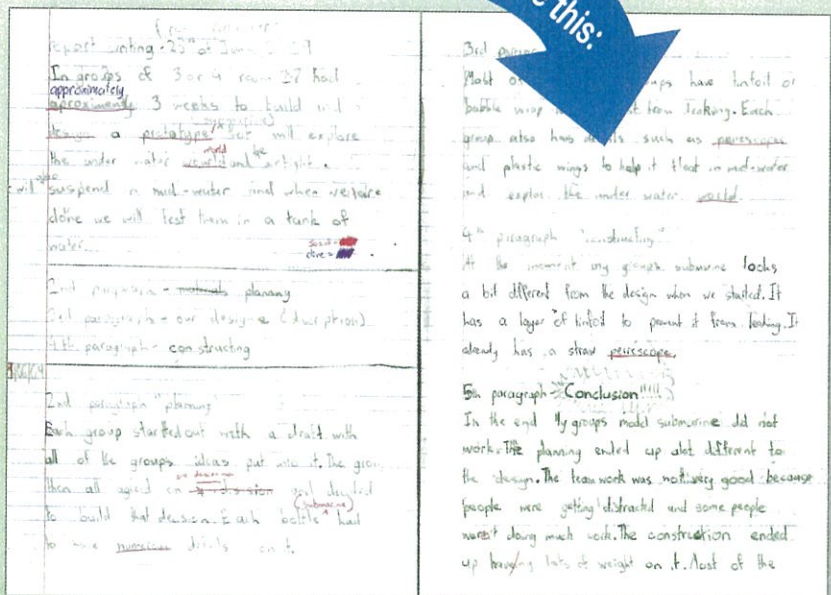 this:
report writing - 25th of June
In groups of 3 or 4 room 27 had
approximately
aproximently 3 weeks to build and
design a prototype that will explore
world be
the under water world and airtight.
will suspend in mid-water and when we are
done we will test them in a tank of
water.
2nd paragraph - planning
3rd paragraph - our design (discription)
4th paragraph - constructing
2nd paragraph "planning"
Each group started out with a draft with
all of the groups ideas put into it. The group
then all agreed on and decided
(submarine)
to build that decision. Each bottle had
to have numerous details on it.
3rd
Most of groups have tinfoil or
bubble wrap it from leaking. Each
group also has details such as periescopes
and plastic wings to help it float in mid-water
and explore the under water world.
4th paragraph "constructing"
At the moment my groups submarine looks
a bit different from the design when we started. It
has a layer of tinfoil to prevent it from leaking. It
already has a straw periescope.
5th paragraph Conclusion"!!!!
In the end My groups model submarine did not
work. The planning ended up alot different to
the design. The team work was not very good because
people were getting distracted and some people
wasn't doing much work. The construction ended
up having lots of weight on it. Most of the